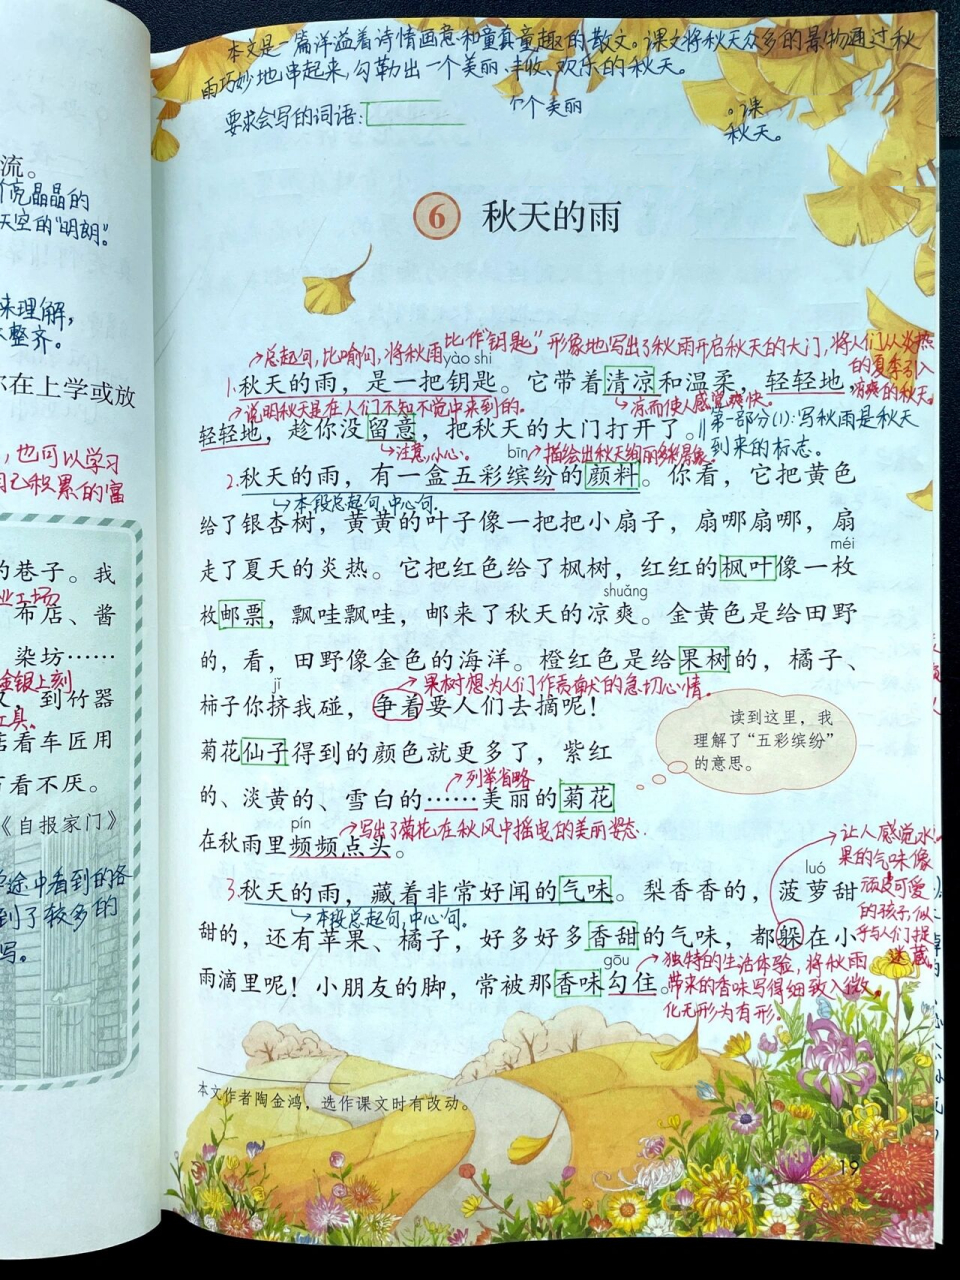 流。
亮晶晶的
天空的“明朗”。
来理解,
整齐。
你在上学或放
,也可以学习
自己积累的富
的巷子。我
业工场
布店、酱
染坊……
金银上刻
,到竹器
工具。
店看车匠用
看不厌。
《自报家门》
途中看到的各
到了较多的
写。
本文是一篇洋溢着诗情画意和童真童趣的散文。课文将秋天众多的景物通过秋
雨巧妙地串起来,勾勒出一个美丽、丰收、欢乐的秋天。
要求会写的词语:
个美丽
。课
秋天。
6 秋天的雨
总起句,比喻句,将秋雨比作“钥匙”形象地写出了秋雨开启秋天的大门,将人们从炎热
的夏季引入
凉爽的秋天。
yào shi
1.秋天的雨,是一把钥匙。它带着清凉和温柔,轻轻地,
说明秋天是在人们不知不觉中来到的。
凉而使人感觉爽快。
轻轻地,趁你没留意,把秋天的大门打开了。
第一部分(1):写秋雨是秋天
到来的标志。
注意,小心。
bīn
描绘出秋天绚丽多彩的景象。
2.秋天的雨,有一盒五彩缤纷的颜料。你看,它把黄色
本段总起句,中心句。
给了银杏树,黄黄的叶子像一把把小扇子,扇哪扇哪,扇
méi
走了夏天的炎热。它把红色给了枫树,红红的枫叶像一枚
shuǎng
枚邮票,飘哇飘哇,邮来了秋天的凉爽。金黄色是给田野
的,看,田野像金色的海洋。橙红色是给果树的,橘子、
jǐ
果树想为人们作贡献的急切心情。
柿子你挤我碰,争着要人们去摘呢!
菊花仙子得到的颜色就更多了,紫红
列举省略
的、淡黄的、雪白的……美丽的菊花
pín
写出了菊花在秋风中摇曳的美丽姿态.
在秋雨里频频点头。
读到这里,我
理解了“五彩缤纷”
的意思。
luó
3.秋天的雨,藏着非常好闻的气味。梨香香的,菠萝甜
本段总起句,中心句。
甜的,还有苹果、橘子,好多好多香甜的气味,都躲在小
gōu
雨滴里呢!小朋友的脚,常被那香味勾住。
让人感觉水
果的气味像
顽皮可爱
的孩子,似
乎与人们捉
迷藏。
独特的生活体验,将秋雨
带来的香味写得细致入微,
化无形为有形。
本文作者陶金鸿,选作课文时有改动。
19